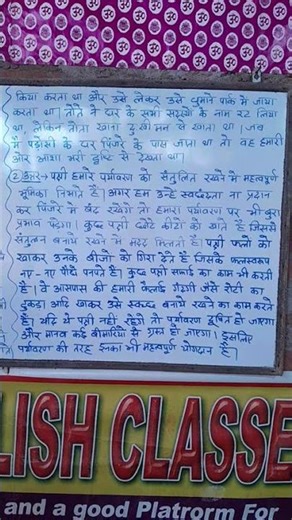 किया करता था और उसे लेकर उसे घुमाने पार्क में जाया
करता था। तोते ने घर के सभी सदस्यों के नाम रट लिया
था लेकिन तोता खाना दुःखी मन से खाता था। जब
मैं पड़ोसी के घर पिंजरे के पास जाता था तो वह हमारी
ओर आशा भरी दृष्टि से देखता था।
2 उत्तर→ पक्षी हमारे पर्यावरण को संतुलित रखने में महत्वपूर्ण
भूमिका निभाते हैं। अगर हम उन्हें स्वच्छंदता ना प्रदान
कर पिंजरे में बंद रखेंगे तो हमारा पर्यावरण पर भी बुरा
प्रभाव पड़ेगा। कुछ पक्षी छोटे कीटों को खाते हैं जिससे
संतुलन बनाये रखने में मदद मिलती है। पक्षी फलों को
खाकर उनके बीजों को गिरा देते हैं जिसके फलस्वरूप
नए - नए पौधे पनपते हैं। कुछ पक्षी सफाई का काम भी करती
हैं। वे आसपास की हमारी फैलाई गंदगी जैसे रोटी का
टुकड़ा आदि खाकर उसे स्वच्छ बनाये रखने का काम करते
हैं। यदि ये पक्षी नहीं रहेंगे तो पर्यावरण दूषित हो जाएगा
और मानव कई बीमारियों से ग्रस्त हो जाएगा। इसलिए
पर्यावरण की तरह इनका भी महत्वपूर्ण योगदान है।
LISH CLASSE
and a good Platrorm For